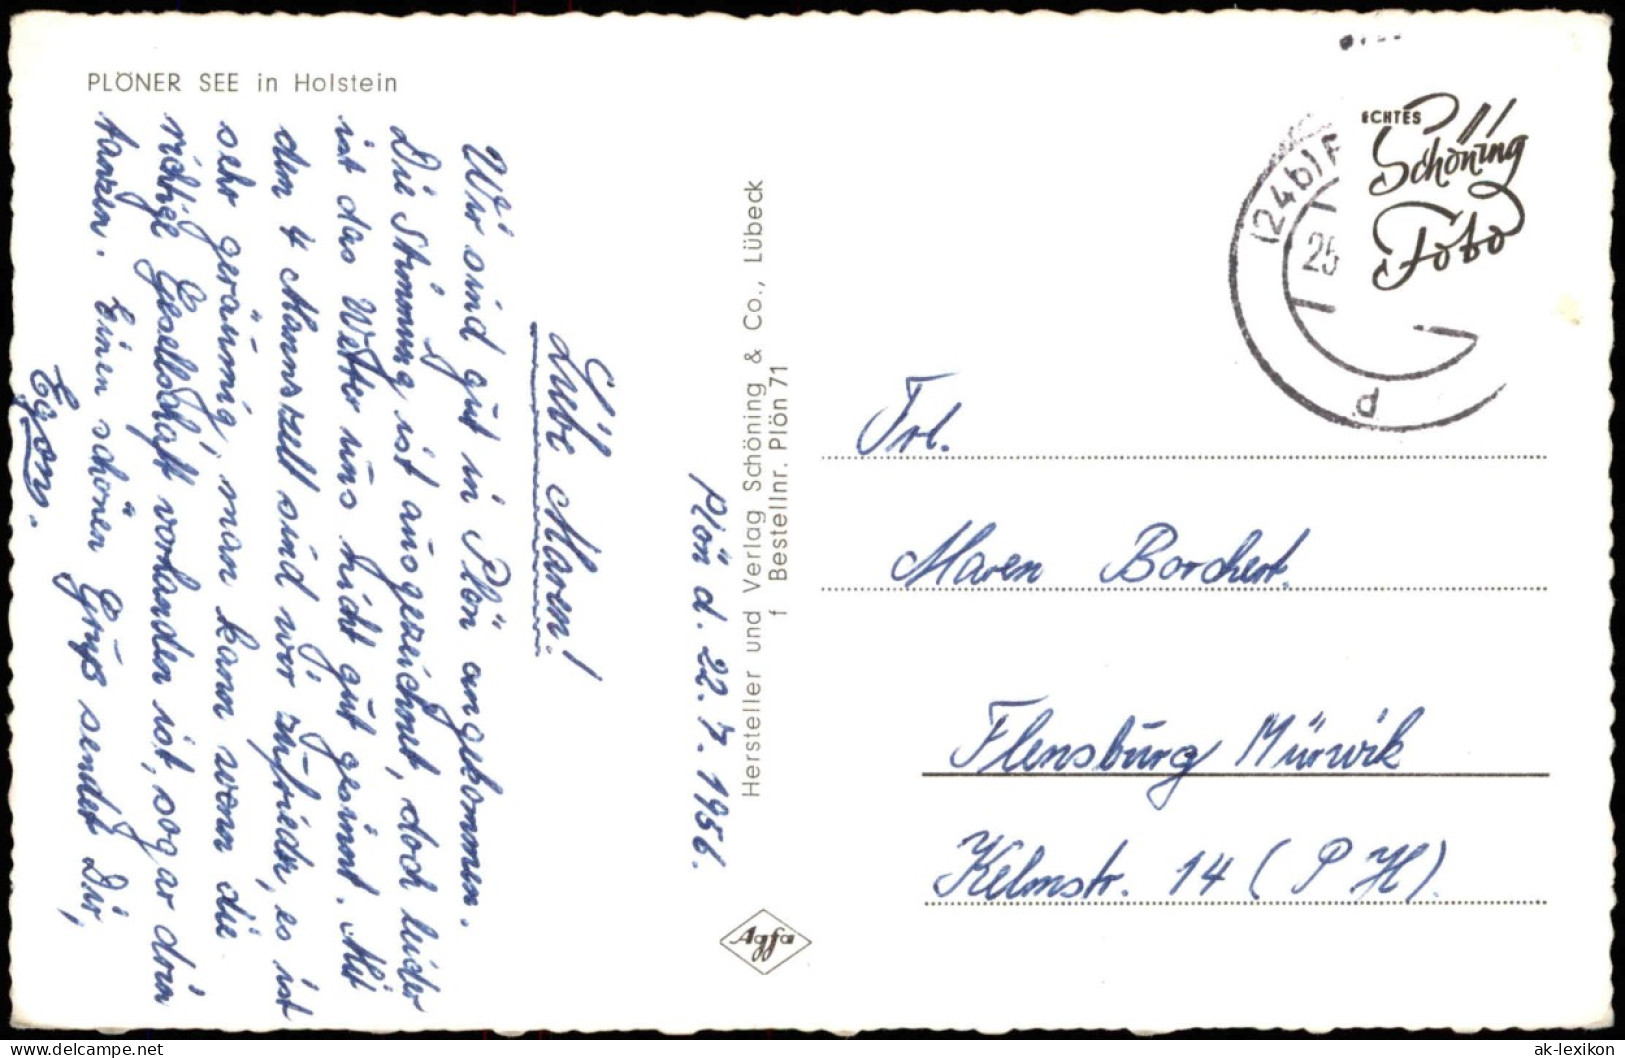 PLÖNER SEE in Holstein
Plön d. 22.7.1956.
Liebe Maren!
Wir sind gut in Plön angekommen.
Die Stimmung ist ausgezeichnet, doch leider
ist das Wetter uns nicht gut gesinnt. Mit
den 4 Mannszelt sind wir zufrieden, es ist
sehr geräumig, man kann wenn die
richtige Gesellschaft vorhanden ist, sogar drin
tanzen. Einen schönen Gruß sendet Dir,
Egon.
Hersteller und Verlag Schöning & Co., Lübeck
f Bestellnr. Plön 71
Agfa
ECHTES
Schöning
Foto
(24b) P
25
P
Frl.
Maren Borchert.
Flensburg Mürwik
Kelmstr. 14 (P H).
hip.delcampe.net
ak-lexikon